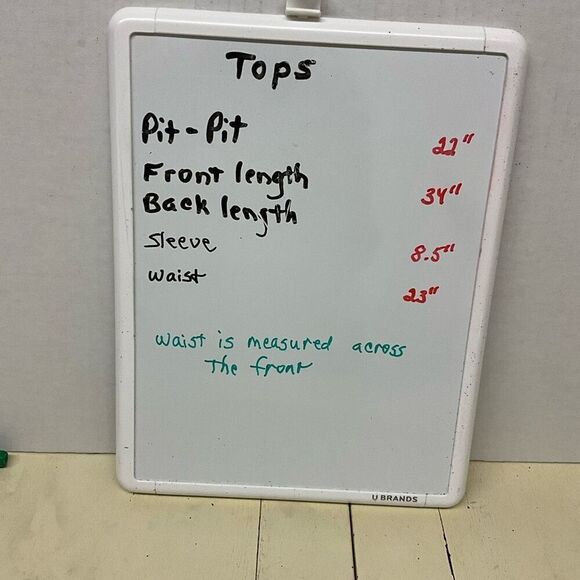 Tops
Pit-Pit 22"
Front length 34"
Back length
Sleeve 8.5"
waist 23"
waist is measured across
The front
U BRANDS